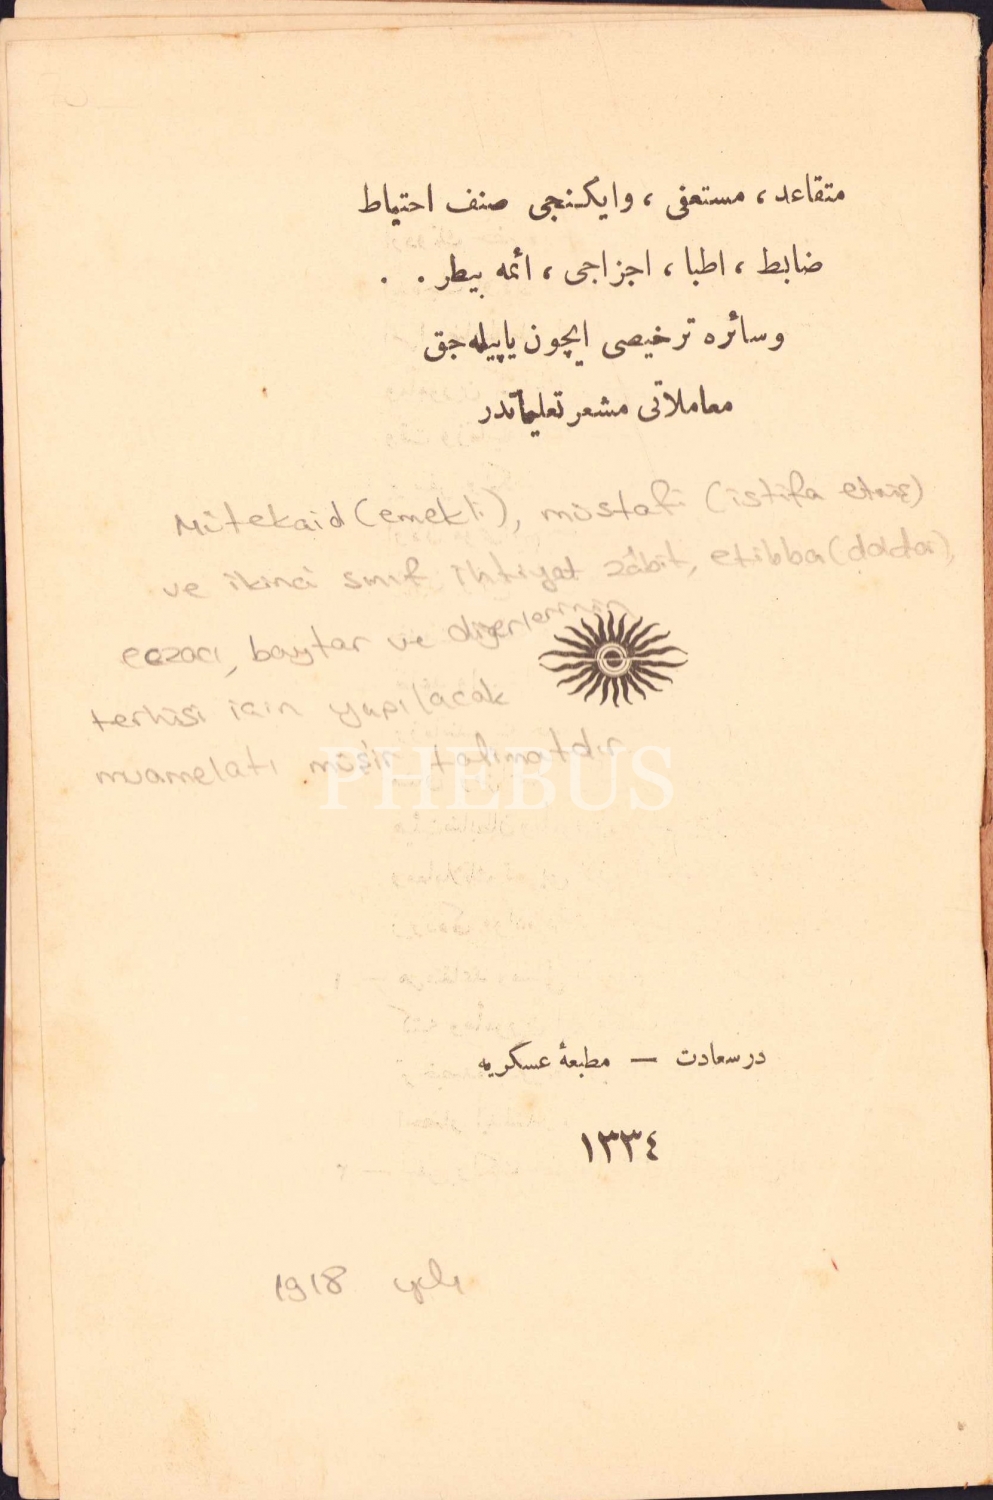 متقاعد ، مستعفی ، وایكنجی صنف احتیاط
ضابط ، اطبا ، اجزاجی ، ائمه بیطر . .
وسائره ترخیصی ایچون یاپیله‌جق
معاملاتی مشعر تعلیماتدر
Mütekaid (emekli), müstafi (istifa etmiş)
ve ikinci sınıf ihtiyat zâbit, etibba (doktor),
eczacı, baytar ve diğerlerinin
terhisi için yapılacak
muamelatı müşir talimatdır
PHEBUS
درسعادت — مطبعهٔ عسكریه
١٣٣٤
1918